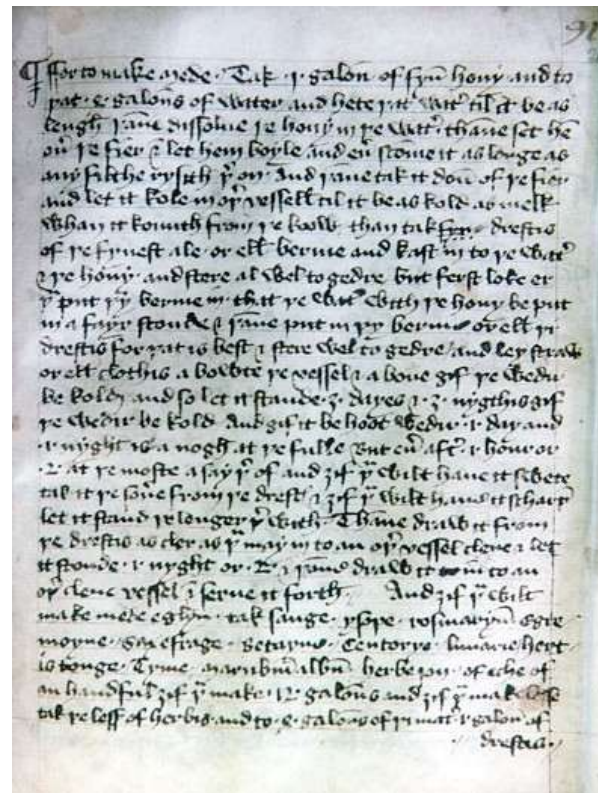 ffor to make mede. Tak .i. galoun of fyn hony and to
þat .4. galouns of water and hete þat watr til it be as
lengh þanne dissolue þe hony in þe watr. thanne set hem
ouer þe fier & let hem boyle and euer scome it as longe as
any filthe rysith þer on. and þanne tak it doun of þe fier
and let it kole in oþer vessell til it be as kold as melk
whan it komith from þe koow. than tak drestis
of þe fynest ale or ell berme and kast in to þe watr
& þe hony. and stere al wel to gedre. but ferst loke er
þu put þy berme in. that þe watr with þe hony be put
in a fayr stonde & þanne put in þy berme or ell þi
drestis for þat is best & stere wel to gedre/ and ley straw
or ell clothis a bowte þe vessel & a boue gif þe wedir
be kolde and so let it stande .3. dayes & .3. nygthis gif
þe wedir be kold And gif it be hoot wedir .i. day and
.i. nyght is a nogh at þe fulle But euer aftr .i. hour or
.2. at þe moste a say þer of and zif þu wilt haue it swete
tak it þe sonere from þe drestis & zif þu wilt haue it scharp
let it stand þe longer þer with. Thanne draw it from
þe drestis as cler as þu may in to an oþer vessel clene & let
it stonde .i. nyght or .2. & þanne draw it in to an
oþer clene vessel & serue it forth. And zif þu wilt
make mede eglyn. tak sauge. ysope. rosmaryne. egre
moyne. saxefrage. betayne. centorye. lunarie. hert
is tonge. Tyme. marubium album. herbe jon. of eche of
an handful zif þu make .12. galouns and zif þu mak lesse
tak þe less of herbis. and to .4. galouns of þi mater .i. galoun of
drestis.